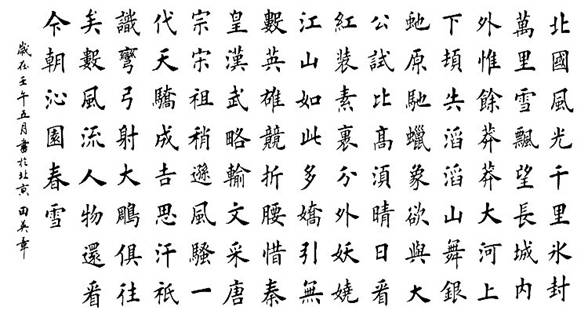 北國風光千里氷封
萬里雪飄望長城内
外惟餘莽莽大河上
下頓失滔滔山舞銀
虵原馳蠟象欲與大
公試比髙須晴日看
紅裝素裏分外妖嬈
江山如此多嬌引無
數英雄競折腰惜秦
皇漢武略輸文采唐
宗宋祖稍遜風騷一
代天驕成吉思汗祇
識彎弓射大鵰俱往
矣數風流人物還看
今朝沁園春雪
歲在壬午五月書於北京 田英章